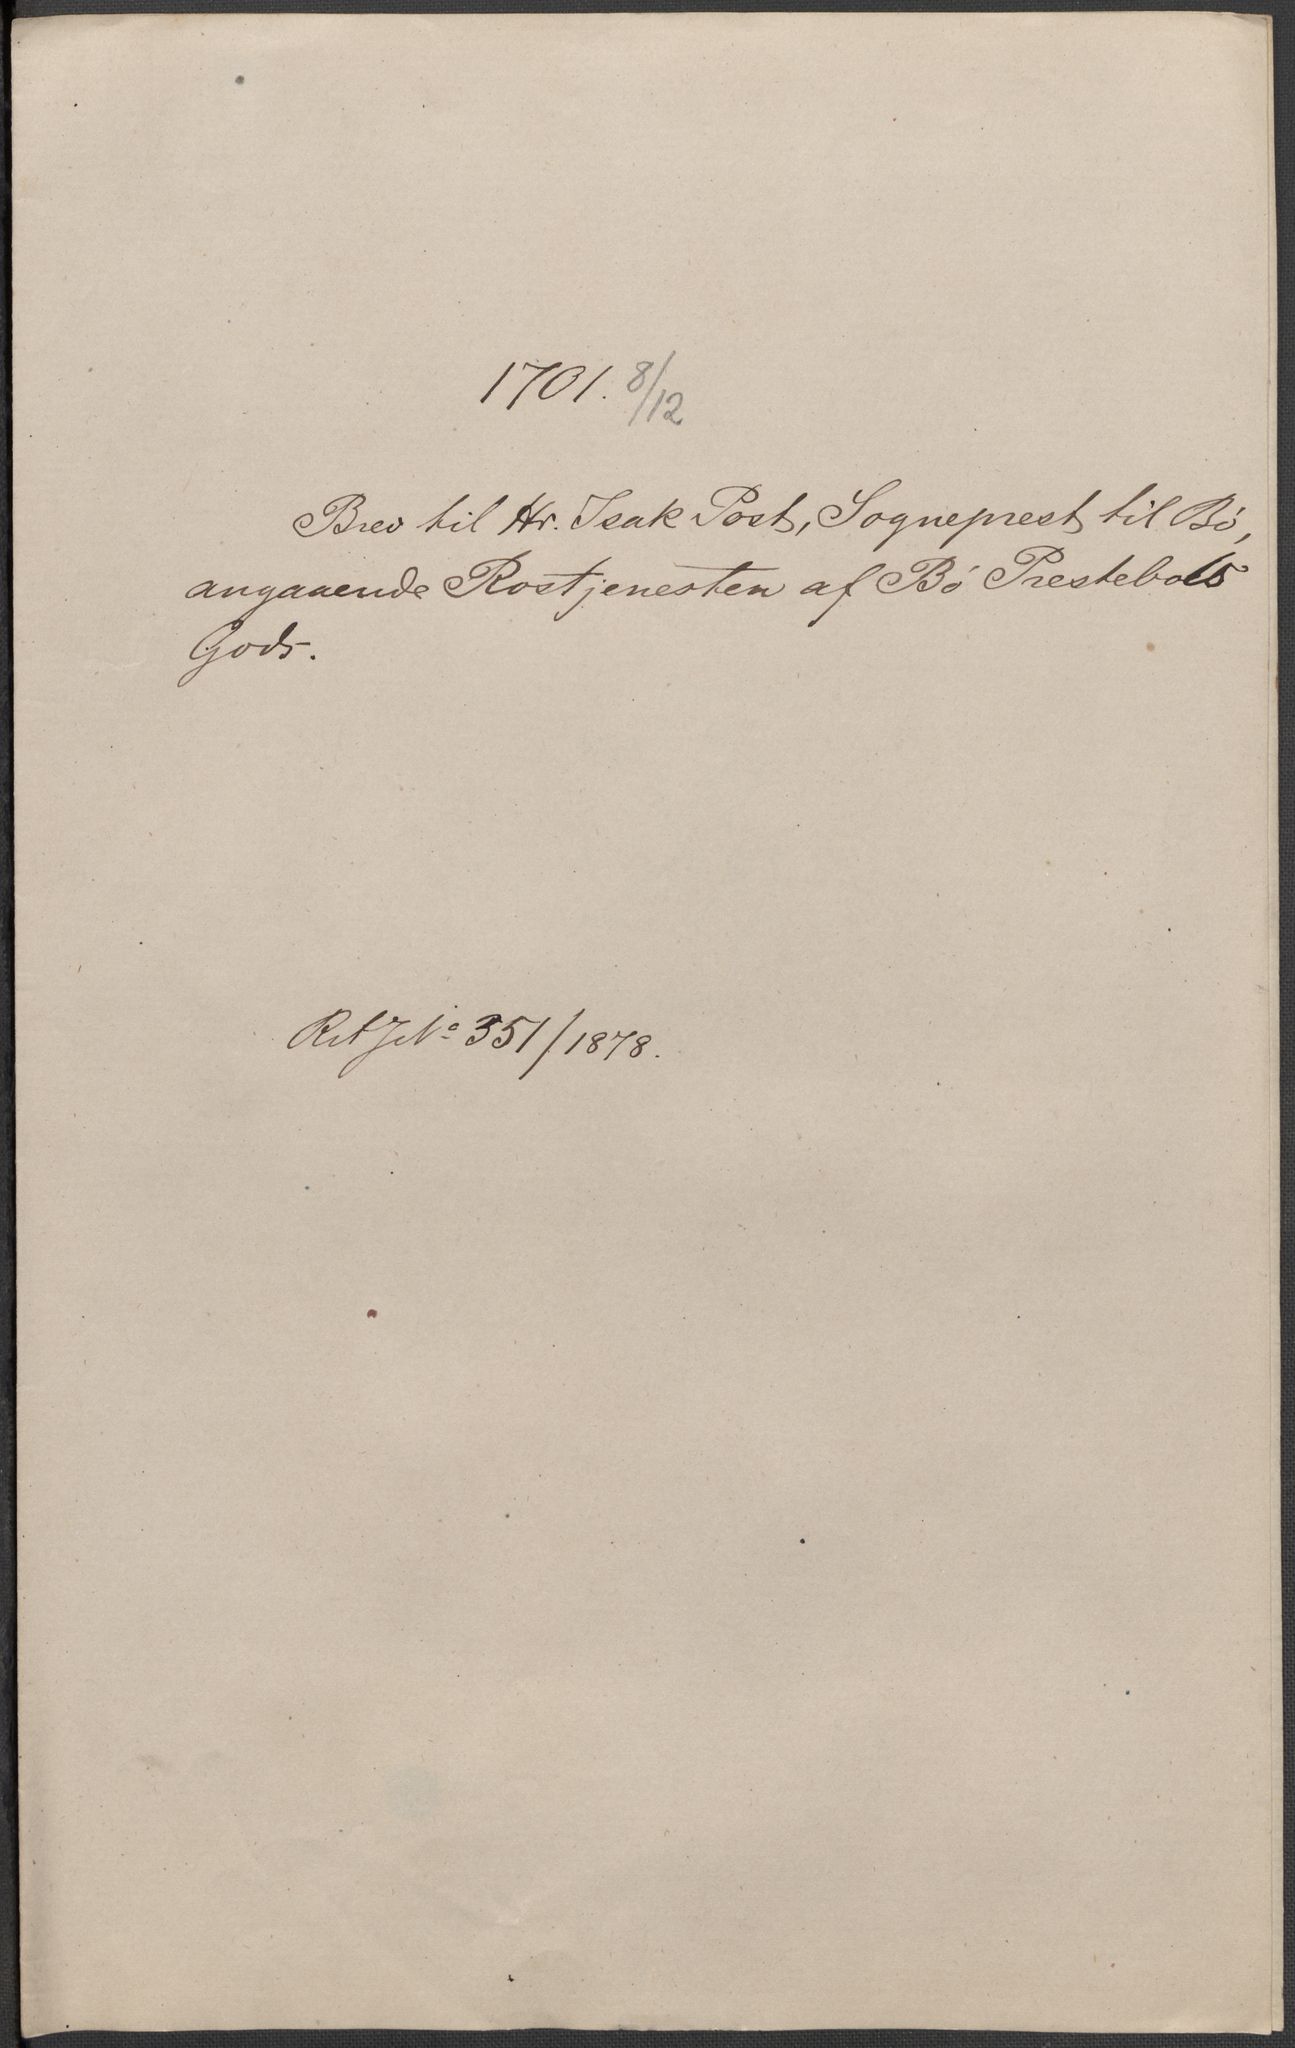 1701. 8/12
Brev til Hr. Isak Post, Sogneprest til Bö,
angaaende Rostjenesten af Bö Prestebols
Gods.
351/1878.